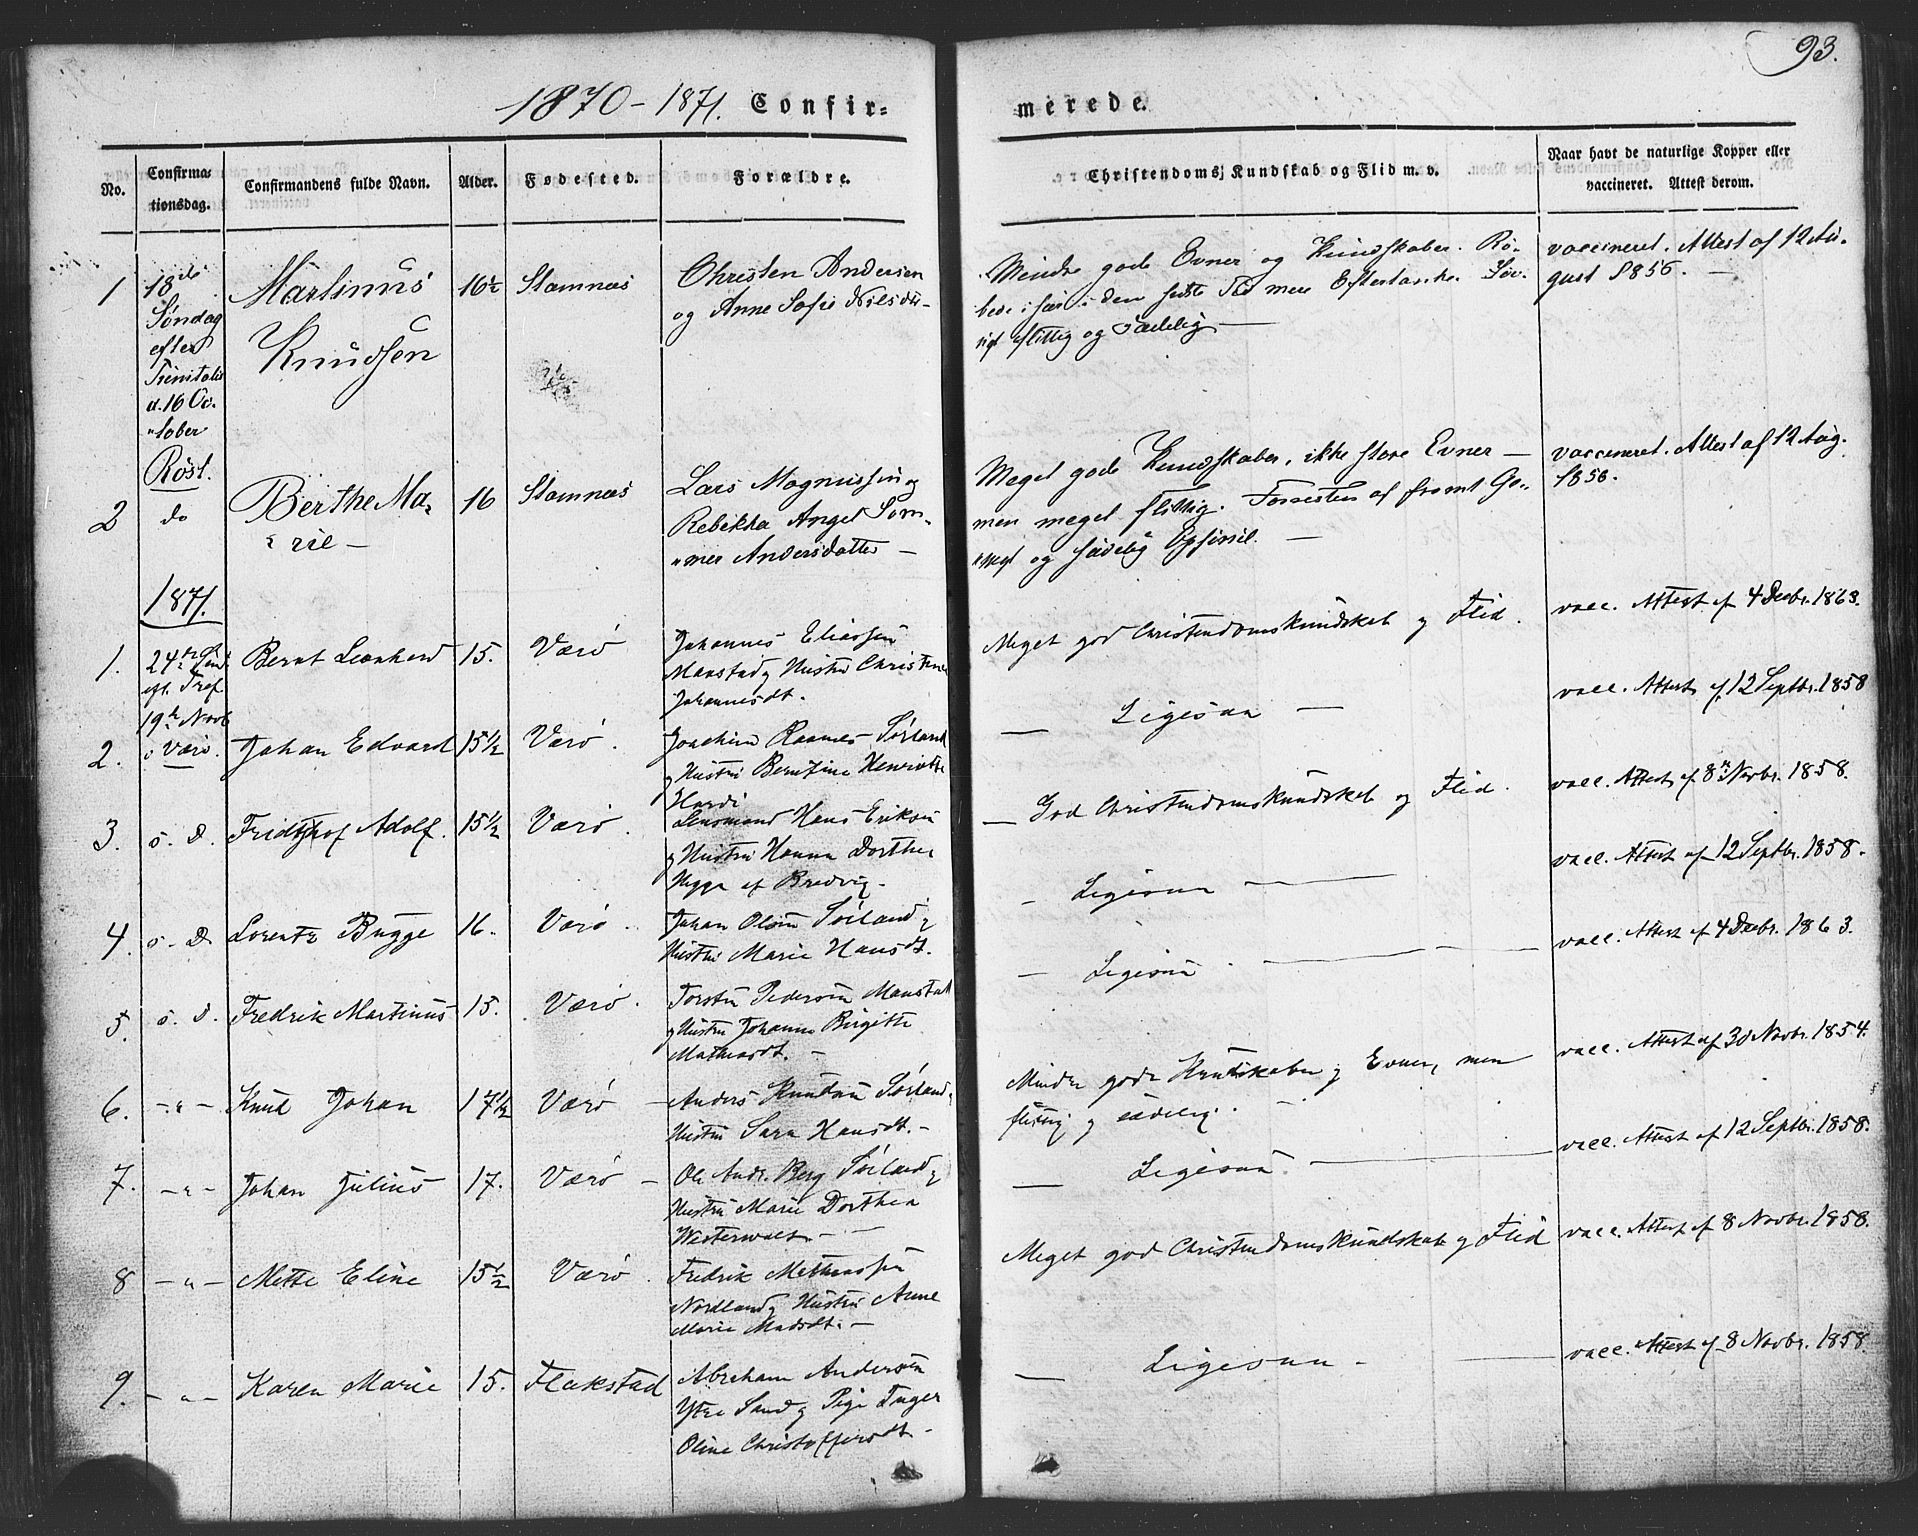 93.
1870-1871. Confir-
merede.
No.
Confirma-
tionsdag.
Confirmandens fulde Navn.
Alder.
Fødested.
Forældre.
Christendoms, Kundskab og Flid m. v.
Naar havt de naturlige Kopper eller
vaccineret. Attest derom.
1
18de
Søndag
efter
Trinitatis
d. 16 Oc-
tober
Røst.
Martinus
Knudsen
16½
Stamnæs
Christen Andersen
og Anne Sofie
Mindre gode Evner og Kundskaber. Rø-
bede især i den sidste Tid mere Eftertanke.
flittig og sædelig —
vaccineret. Attest af 12 Au-
gust 1856. —
2
do
Berthe Ma-
rie —
16
Stamnæs
Lars Magnussen og
Rebekka Angel Som-
mer Andersdatter —
Meget gode Kundskaber, ikke store Evner —
men meget flittig. Forresten af fromt Ge-
og sædelig Opførsel. —
vaccineret. Attest af 12 Aug.
1856.
1871.
1.
24de Sønd.
eft. Tref.
19de Novb
i Værø.
Bernt Leonhard
15.
Værø
Johannes Eliassen
Manstad og Hustru Christine
Johannesdt.
Meget god Christendomskundskab og Flid.
vacc. Attest af 4 Decbr. 1863.
2.
Johan Edvard
15½
Værø.
Joachim Sørland
og Hustru Berntine Henriette
Hardi
— Ligesaa —
vacc. Attest af 12 Septbr. 1858
3.
o. D.
Fridthjof Adolf.
15½
Værø.
Lensmand Hans Eriksen
og Hustru Hanna Dorthea
Hygge af Bredvig.
— God Christendomskundskab og Flid.
vacc. Attest af 8de Novbr. 1858.
4.
o. D
Lorentz Bugge
16.
Værø.
Johan Olsen Sørland og
Hustru Marie Hansdt.
- Ligesaa —
vacc. Attest af 12 Septbr. 1858.
5.
o. D.
Fredrik Martinus
15.
Værø.
Torsten Pedersen Manstad
og Hustru Johanna Birgitte
—
— Ligesaa. —
vacc. Attest af 4 Decbr. 1863.
6.
-"-
Knut Johan
17½
Værø —
Anders Knudsen Sørland og
Hustru Sara Hansdt. -
Mindre gode Kundskaber og Evner, men
flittig og sædelig. -
vacc. Attest af 30 Novbr. 1854.
7.
-"-
Johan Julius
17.
Værø —
Ole Andr. Berg Sørland og
Hustru Marie Dorthea
Westerwald - —
— Ligesaa —
vacc. Attest af 12 Septbr. 1858.
8
-"-
Mette Eline
15½
Værø.
Fredrik Mathiassen
Nordland og Hustru Anne
Marie Madsdt. —
Meget god Christendomskundskab og Flid
vacc. Attest af 8 Novbr. 1858.
9.
-"-
Karen Marie
15.
Flakstad
Abraham Andersen
Ytre Sand og Pige Inger
Oline Christoffersdt -
— Ligesaa - —
vacc. Attest af 8 Novbr. 1858.